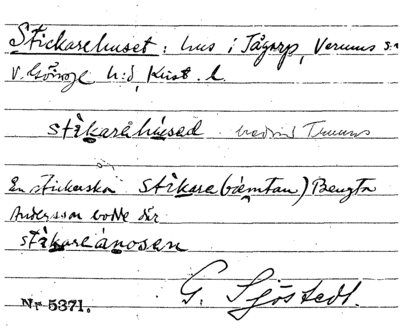 Stickarehuset: hus i Tågarp, Verums s:n
V. Göinge h:d, Krist. l.
stìkaréhúsed
En stickerska stìkare(bæmtan) Bengta
Andersson bodde där
stìkareánosen
G. Sjöstedt.
Nr 5371.